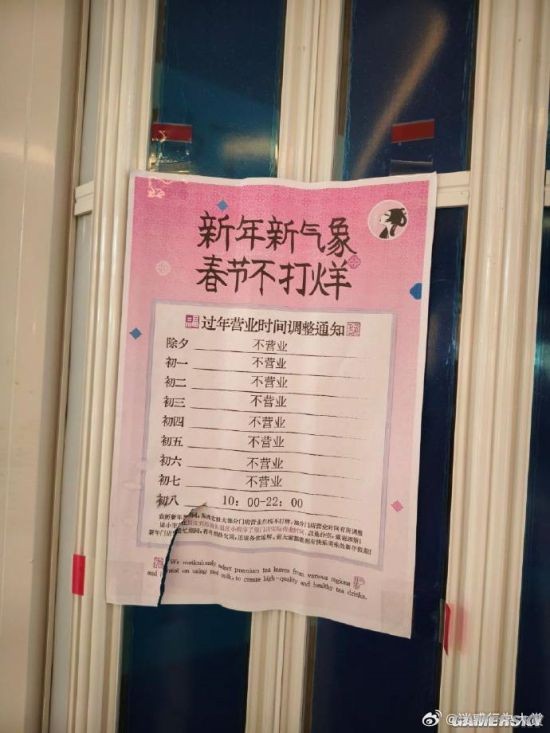 新年新气象
春节不打烊
过年营业时间调整通知
除夕 不营业
初一 不营业
初二 不营业
初三 不营业
初四 不营业
初五 不营业
初六 不营业
初七 不营业
初八 10:00-22:00
We meticulously select premium tea leaves from various regions
and insist on using real milk, to create high-quality and healthy tea drinks.
@迷惑行为大赏
GAMERSKY